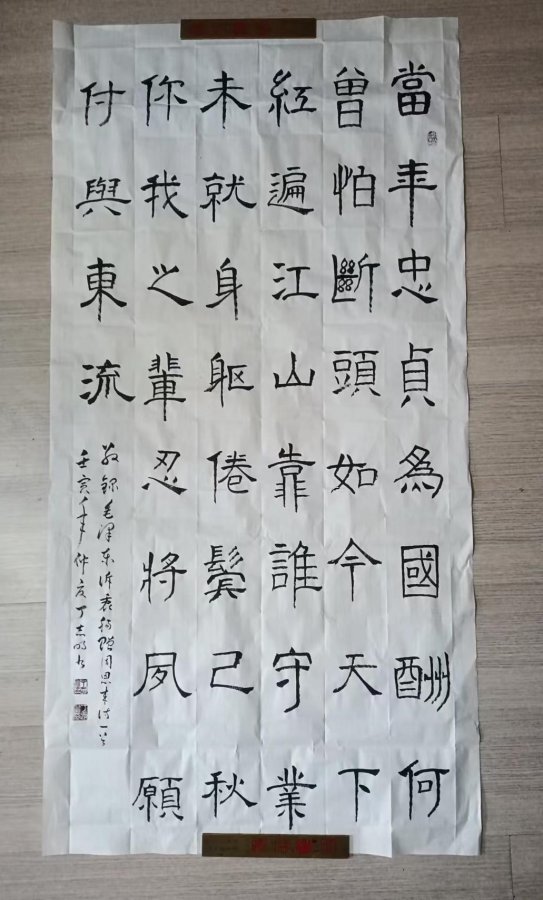 當年忠貞為國酬何
曾怕斷頭如今天下
紅遍江山靠誰守業
未就身軀倦鬢己秋
你我之輩忍將夙願
付與東流
敬錄毛澤東訴衷情贈周恩來詩一首
壬寅年仲夏丁志明书